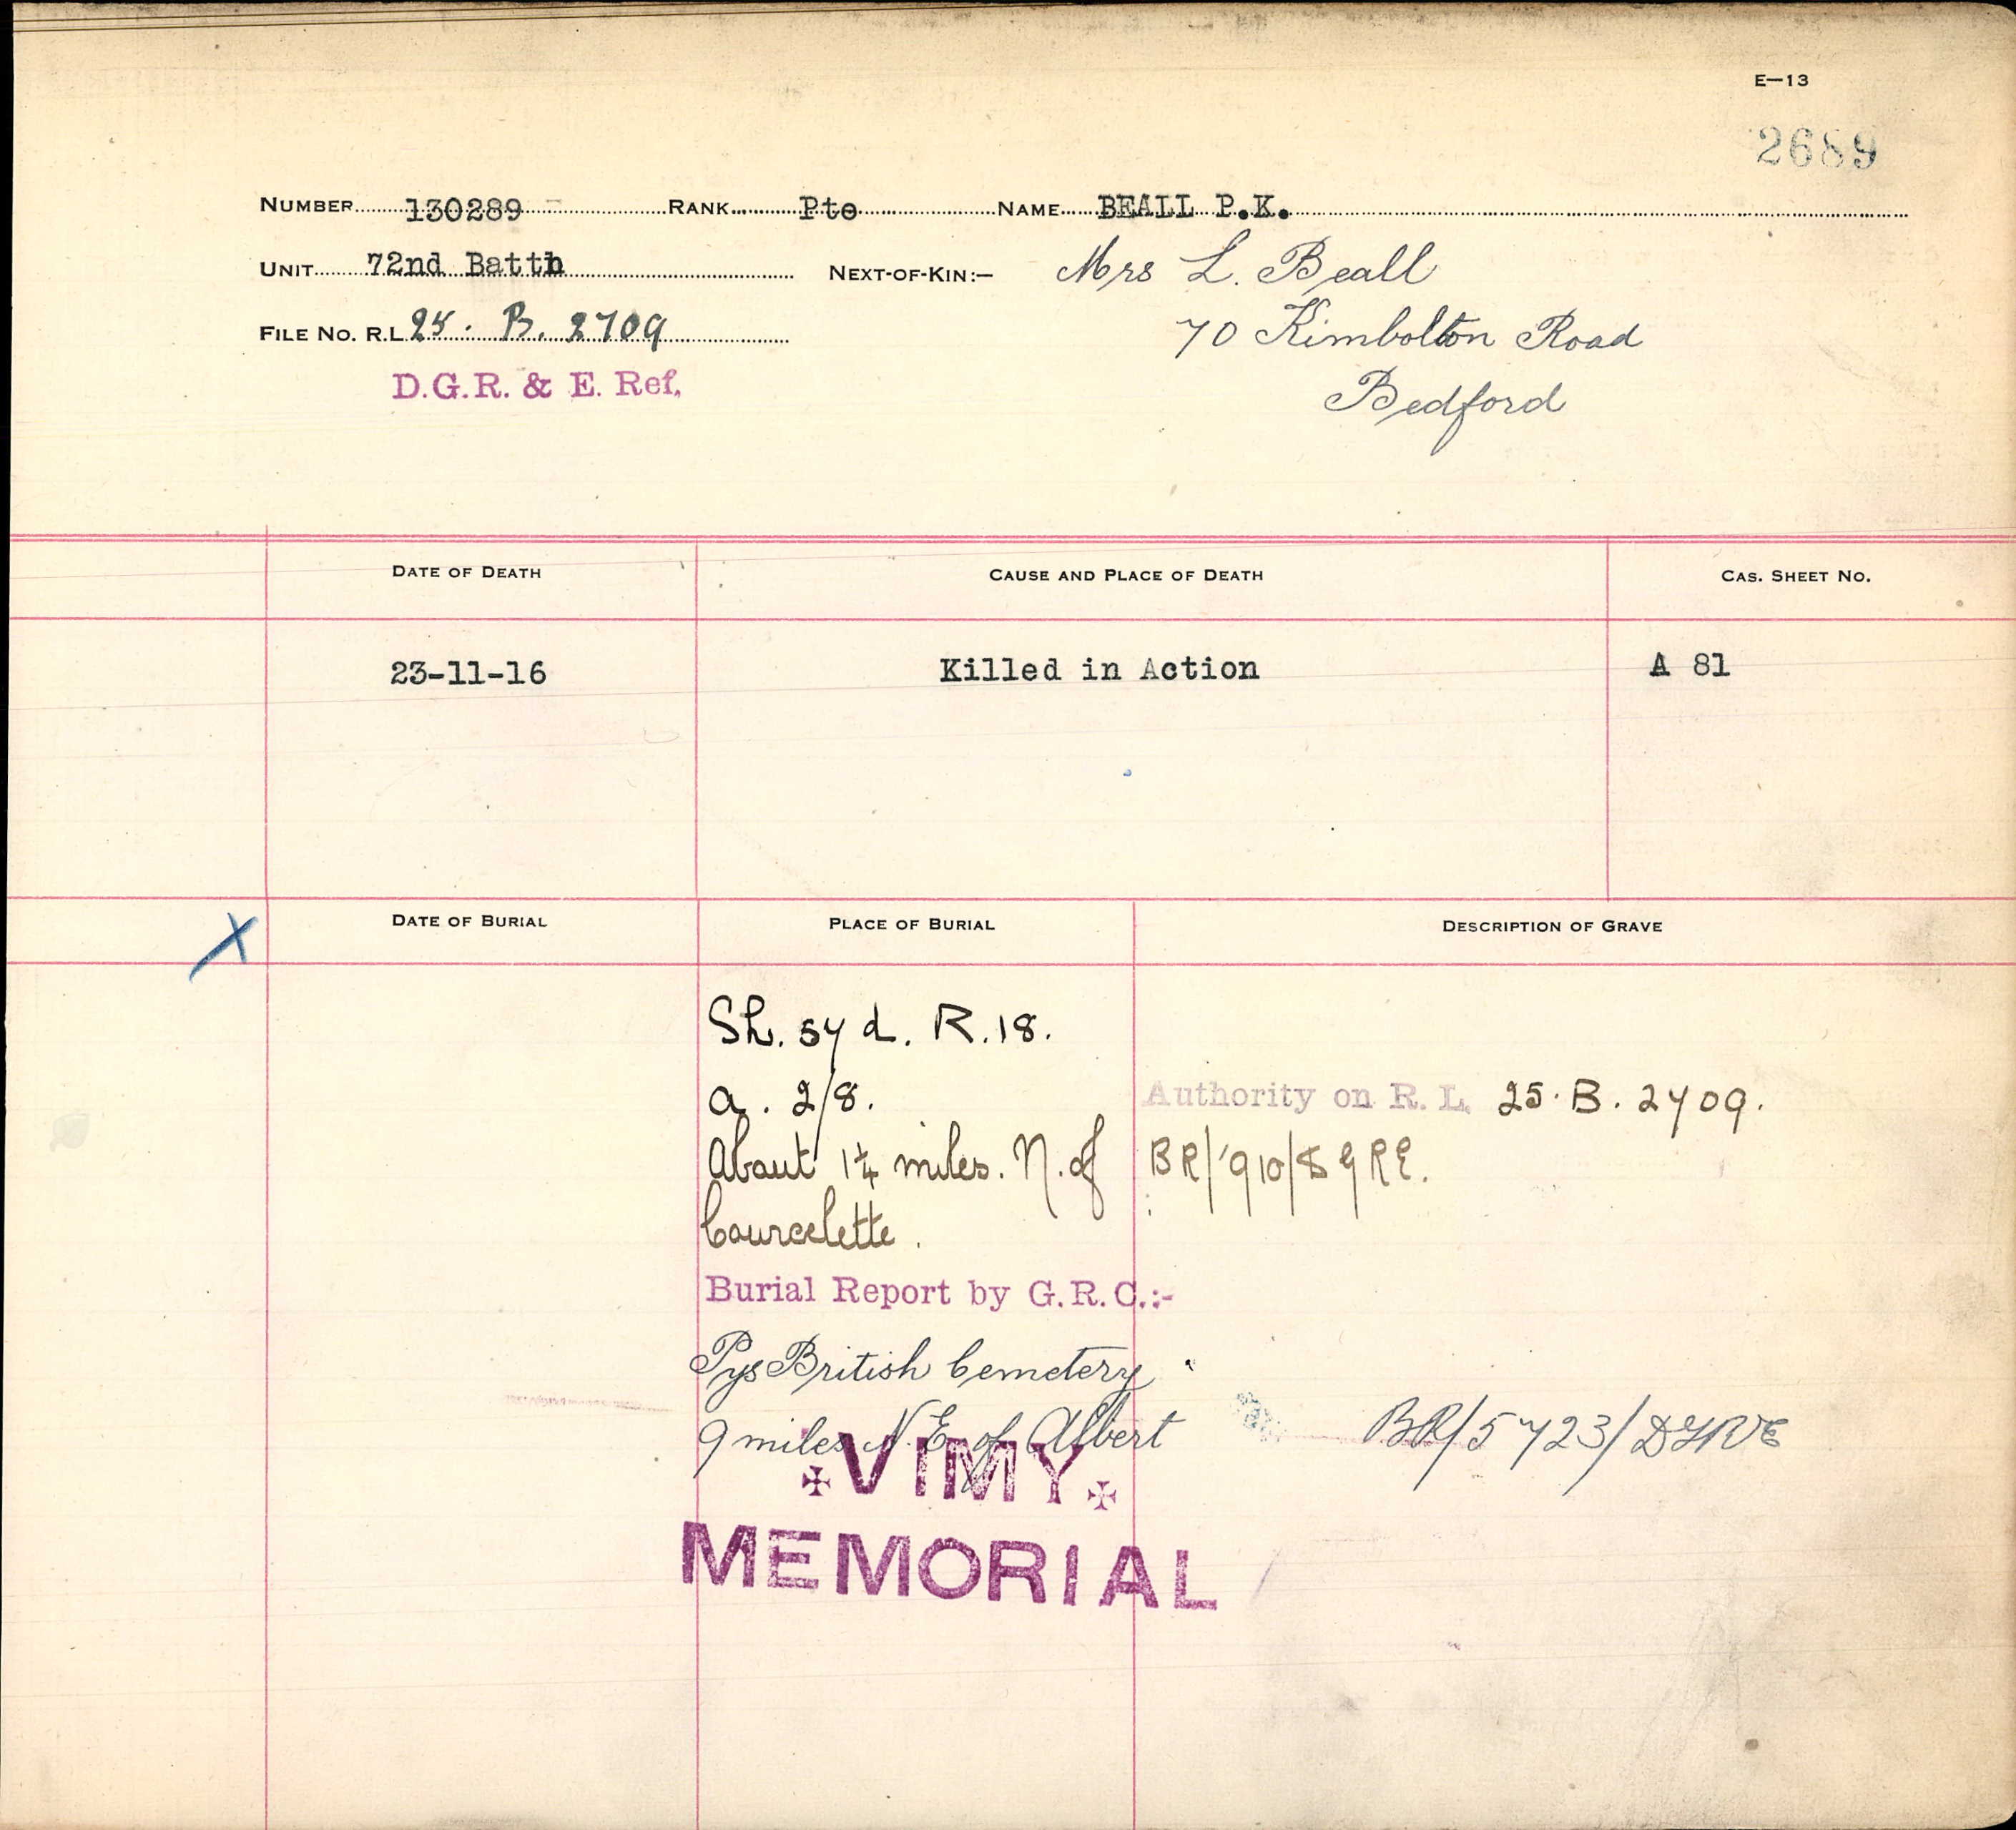 E—13
2689
NUMBER 130289 RANK Pte NAME BEALL P.K.
UNIT 72nd Battn NEXT-OF-KIN:— Mrs L. Beall
70 Kimbolton Road
FILE NO. R.L. 25. B. 2709
D.G.R. & E. Ref.
Bedford
DATE OF DEATH CAUSE AND PLACE OF DEATH CAS. SHEET NO.
23-11-16 Killed in Action A 81
X DATE OF BURIAL PLACE OF BURIAL DESCRIPTION OF GRAVE
Sh. 57 d. R.18.
a. 2/8. Authority on R.L. 25. B. 2709.
About 1¼ miles. N. of
Courcelette.
Burial Report by G.R.C.:-
Pys British Cemetery
9 miles N.E. of Albert
VIMY
MEMORIAL